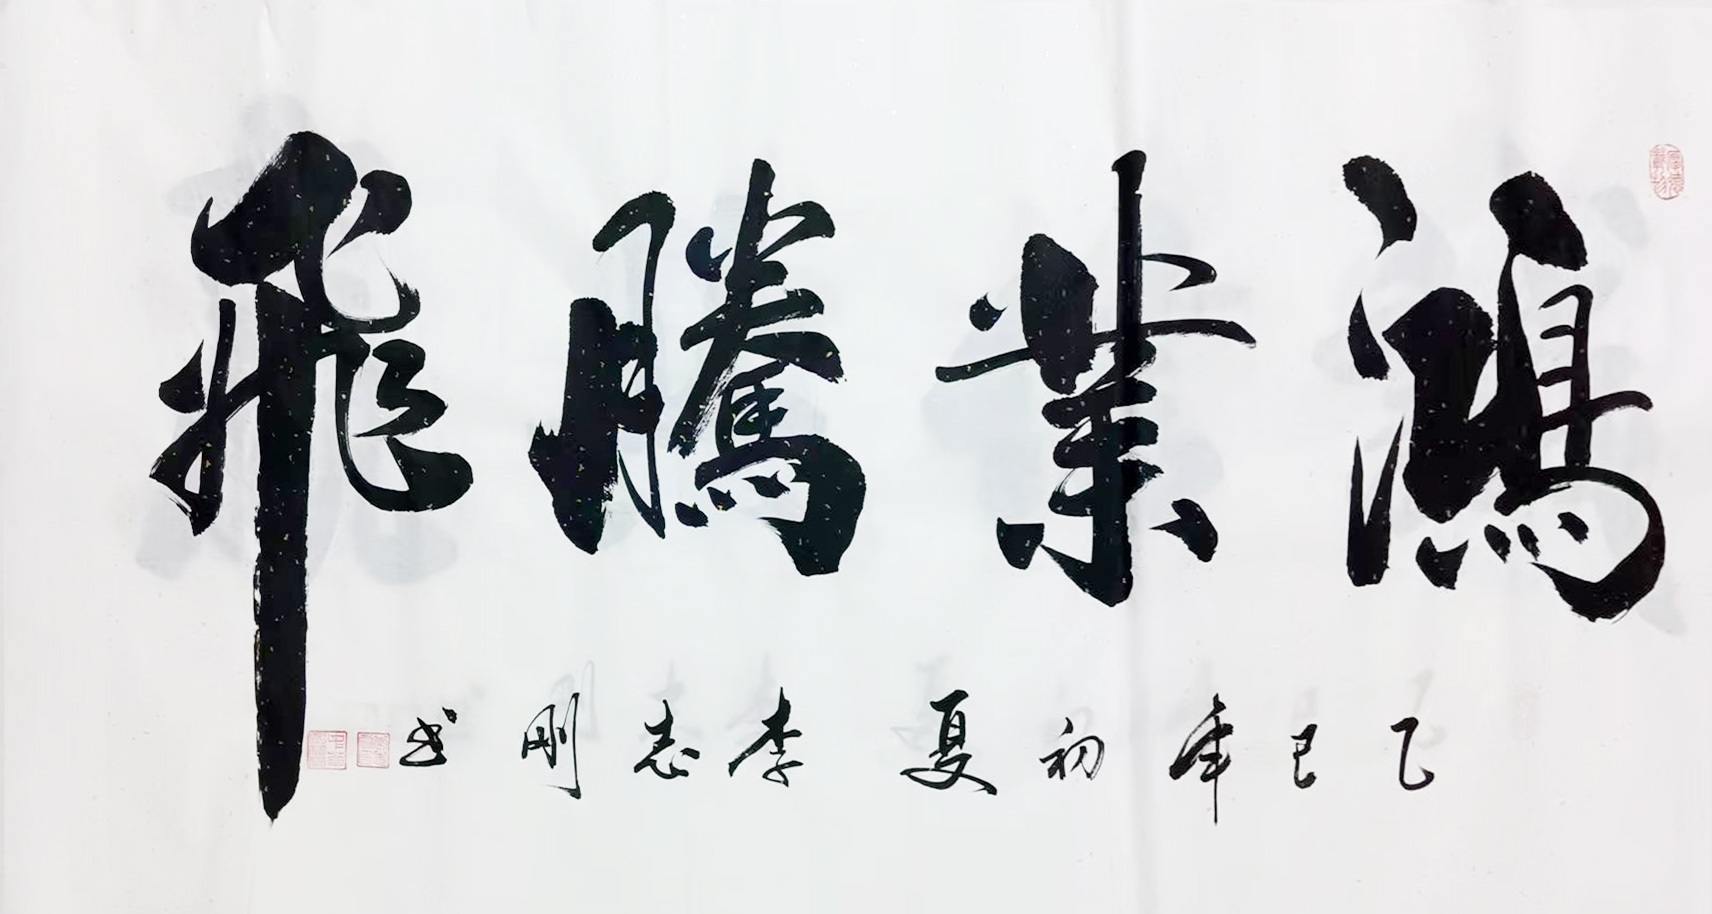 鴻業騰飛
乙巳年初夏李志剛书